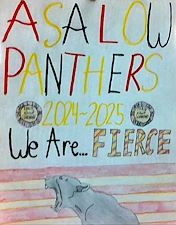 ASA LOW
PANTHERS
2024~2025
We Are... FIERCE